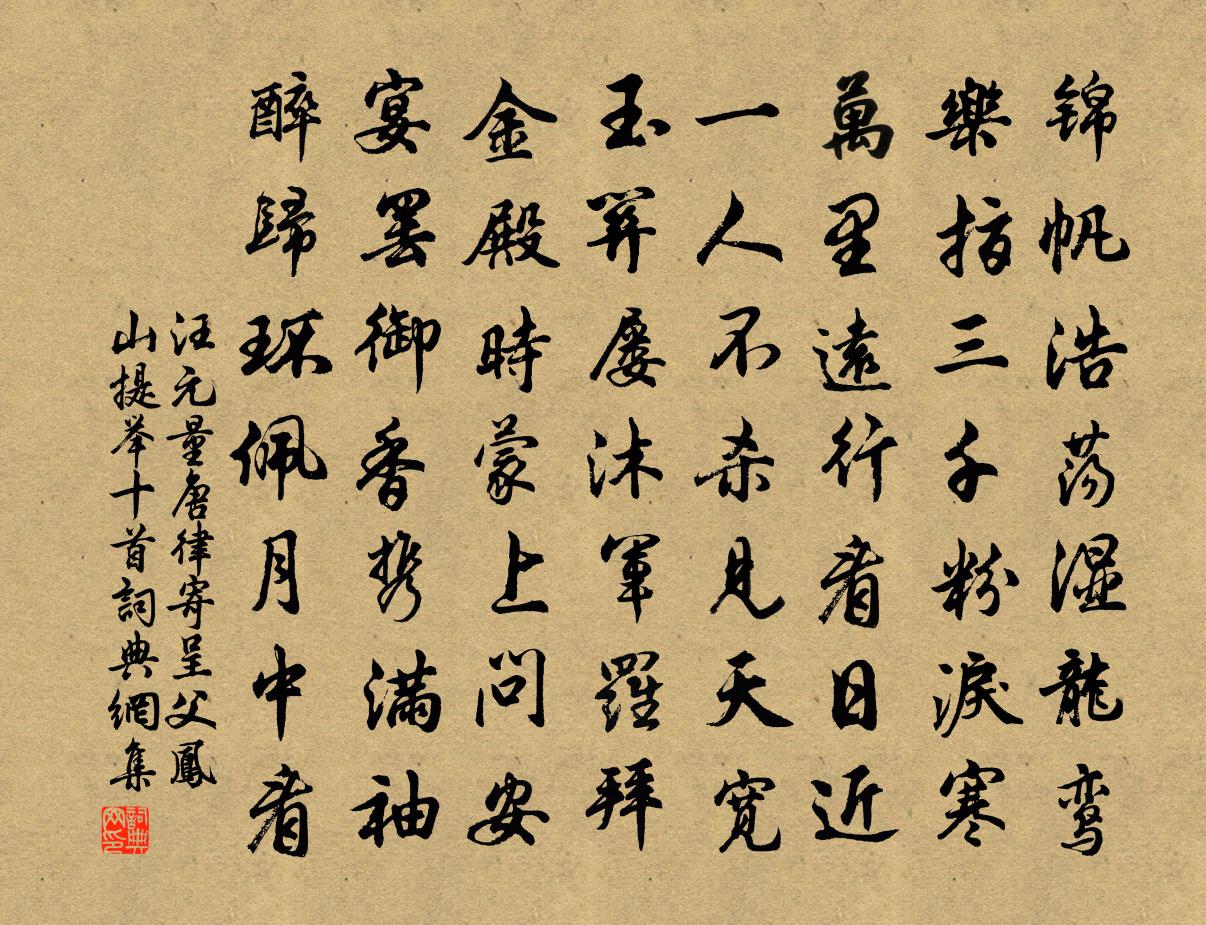 锦帆浩荡湿龍鸾
樂指三千粉淚寒
萬里遠行看日近
一人不杀見天宽
玉笄屡沐軍羅拜
金殿時蒙上問安
宴罢御香携滿袖
醉歸环佩月中看
汪元量唐律寄呈父鳳
山提举十首詞典網集
詞典网印